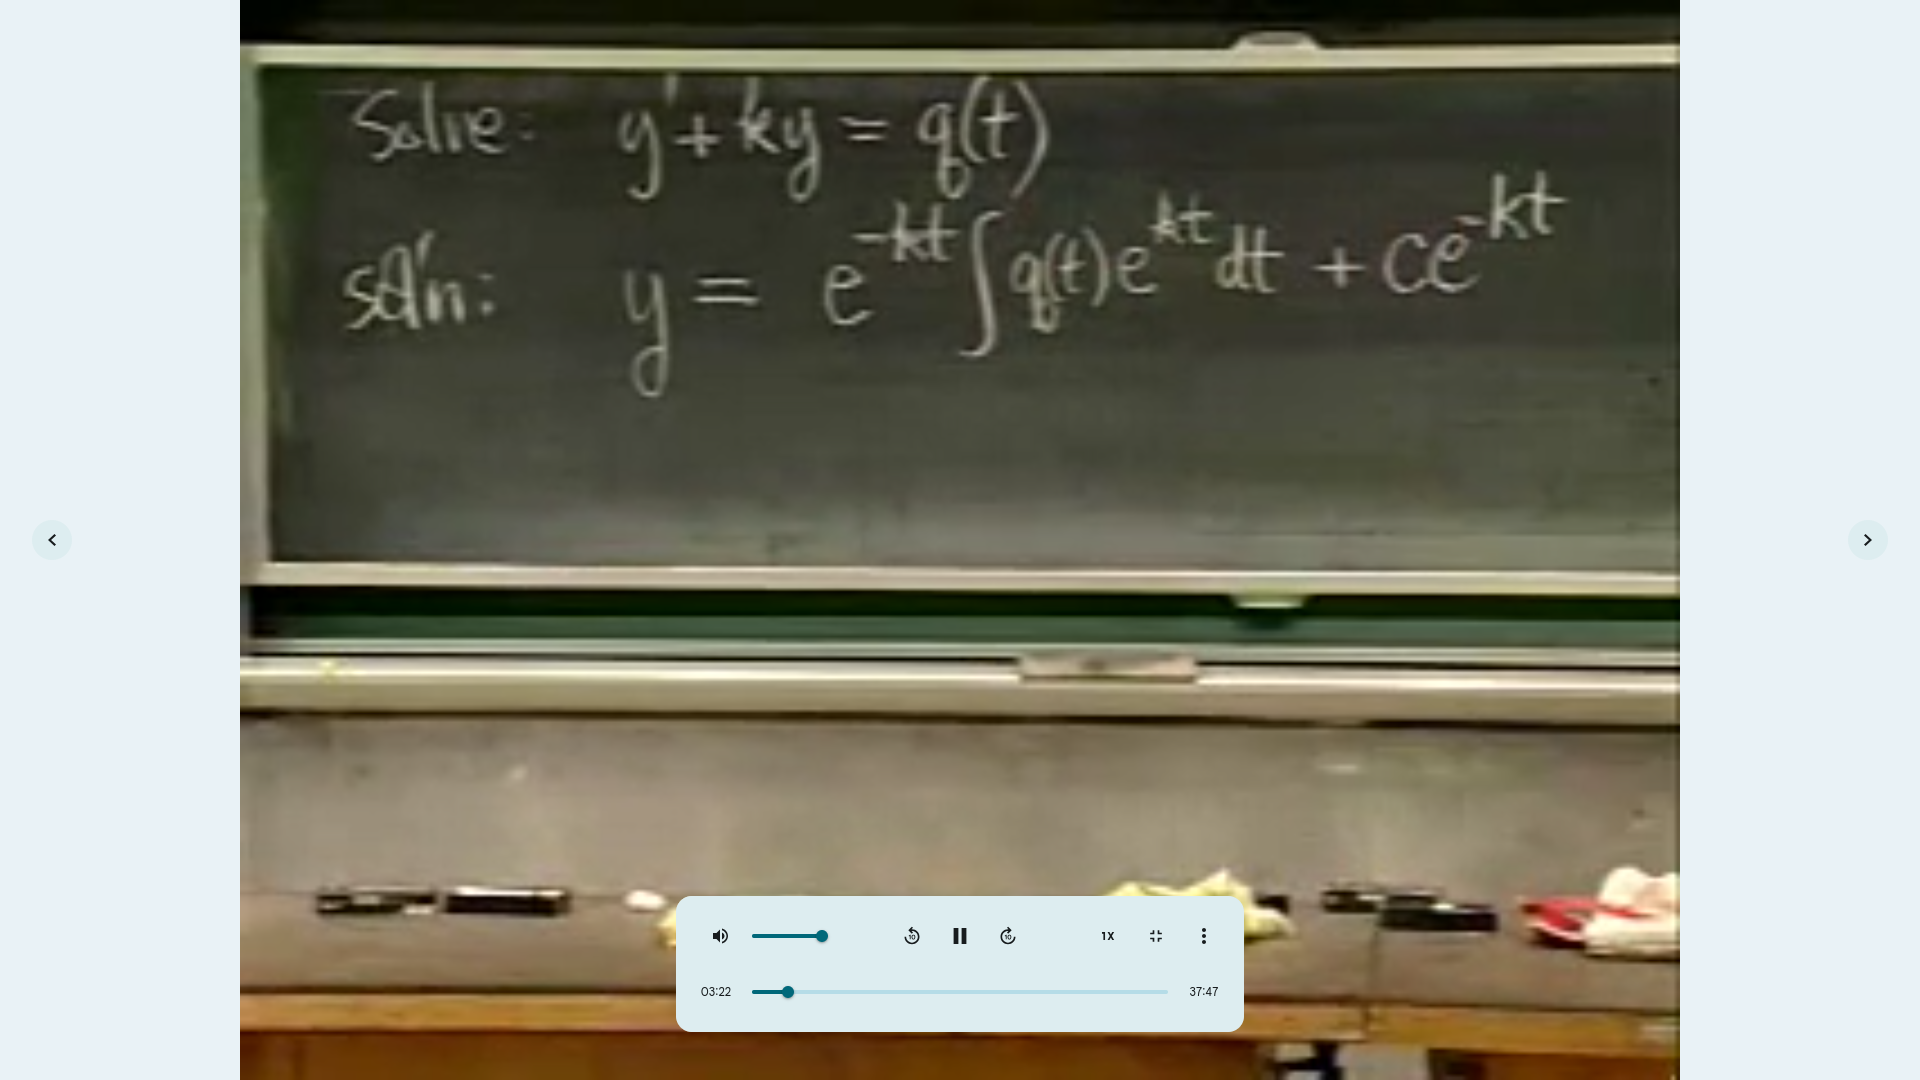 Solve: y' + ky = q(t)
sol'n: y = e^{-kt} ∫ q(t) e^{kt} dt + Ce^{-kt}
10
10
1X
03:22
37:47